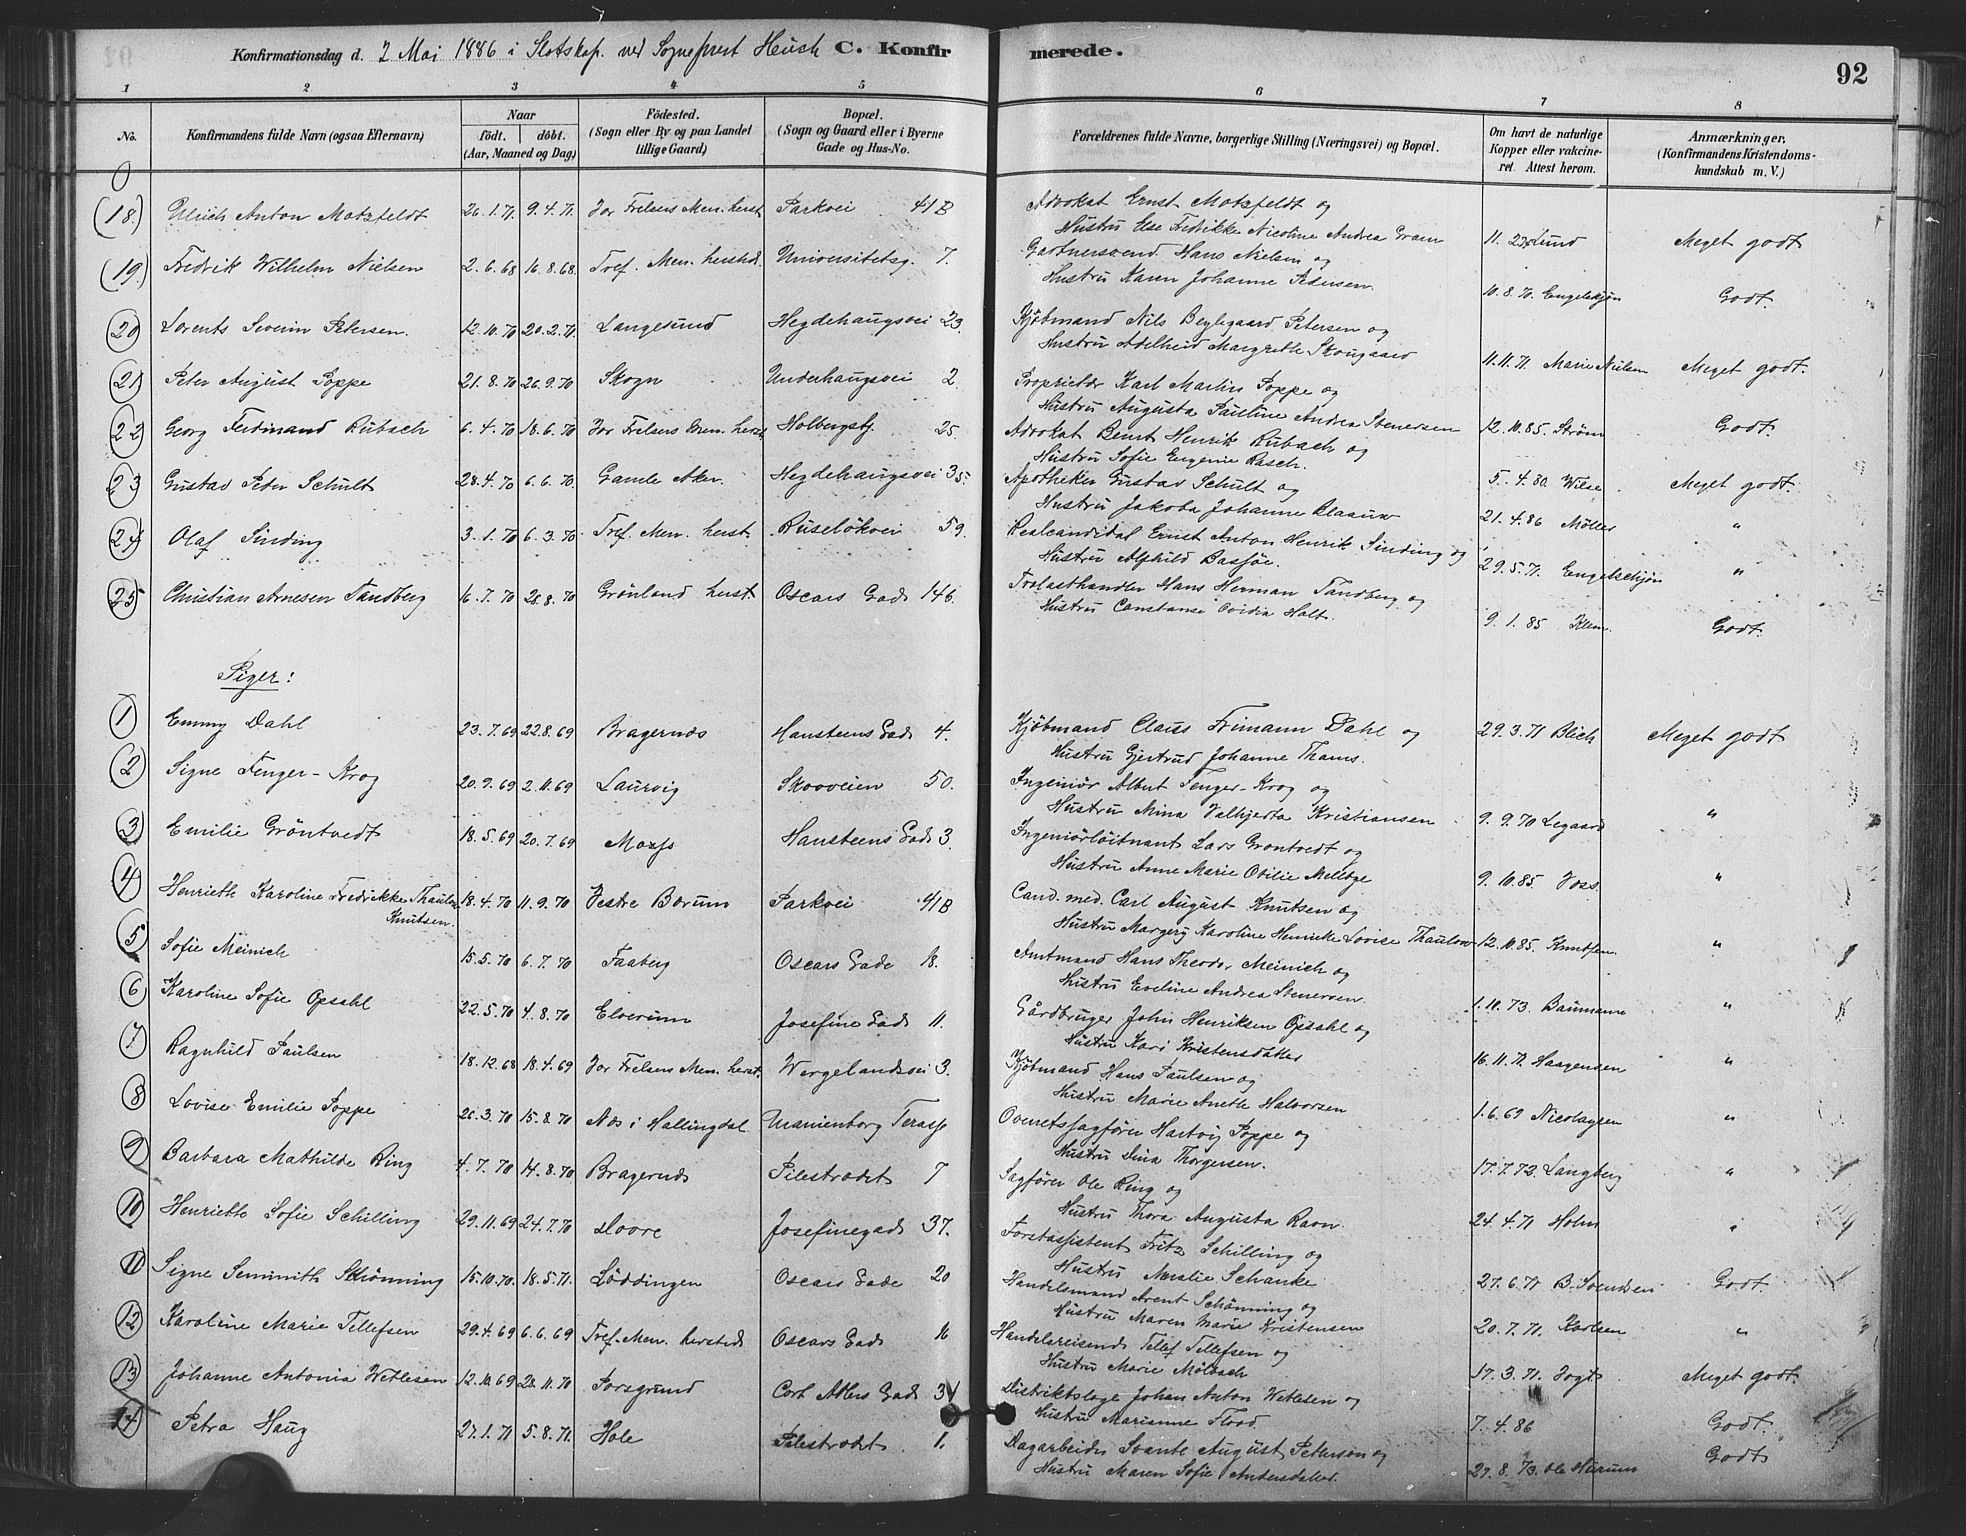 Konfirmationsdag d. 2 Mai 1886 i Slotskap. ved Sogneprest Heuch C. Konfirmerede. 92
1 2 3 4 5 6 7 8
No. Konfirmandens fulde Navn (ogsaa Efternavn) Naar födt. döbt. (Aar, Maaned og Dag) Födested. (Sogn eller By og paa Landet tillige Gaard) Bopæl. (Sogn og Gaard eller i Byerne Gade og Hus-No. Forældrenes fulde Navne, borgerlige Stilling (Næringsvei) og Bopæl. Om havt de naturlige Kopper eller vakcineret. Attest herom. Anmærkninger, (Konfirmandens Kristendomskundskab m. V.)
(18.) Ulrich Anton Motzfeldt 26.1.71. 9.4.71. Vor Frelsers Men. herst. Parkvei 41B Advokat Ernst Motzfeldt og
Hustru Else Fredrikke Nicoline Andrea Gram 11. Lund Meget godt
(19.) Fredrik Wilhelm Nielsen 2.6.68 16.8.68. Tref. Men. hersteds. Universitetsg. 7. Gartnersvend Hans Nielsen og
Hustru Karen Johanne Pedersen. 10.8.70. Engelskjøn Godt
20 Lorents Severin Petersen. 12.10.70 20.2.71. Langesund Hegdehaugsvei 23. Kjöbmand Nils Petersen og
Hustru Adelheid Margrethe Skougaard 11.11.71. Marie Nielsen Meget godt.
21 Peter August Poppe 21.8.70 26.9.70 Skogn Underhaugsvei 2. Proprietær Karl Martin Poppe og
Hustru Augusta Pauline Andrea Stenersen 12.10.85. Ström Godt.
22 Georg Ferdinand Rubach 6.4.70 18.6.70 Vor Frelsers Men. herst. Holbergsg. 25. Advokat Bernt Henrik Rubach og
Hustru Sofie Eugenie Rasch. 5.4.80. Wilse Meget godt.
23 Gustav Peter Schult 28.4.70 6.6.70. Gamle Aker. Hegdehaugsvei 35. Apotheker Gustav Schult og
Hustru Jakoba Johanne Blaauw 21.4.86 Möller "
24 Olaf Sinding 3.1.70 6.3.70 Tref. Men. herst. Ruselökvei 59. Realcandidat Ernst Anton Henrik Sinding og
Hustru Alfhild Bassöe. 29.5.71. Engelschjøn "
25 Christian Arnesen Tandberg 16.7.70 28.8.70 Grönland herst. Oscars Gade 146. Trelasthandler Hans Herman Tandberg og
Hustru Constanse Ovidia Holt. 9.1.85 Klem. Godt.
Piger:
1 Emmy Dahl 23.7.69 22.8.69 Bragernæs Hansteens Gade 4. Kjöbmand Claus Freimann Dahl og
Hustru Gjertrud Johanne Thams. 29.3.71 Blich Meget godt
2 Signe Fenger-Krog 20.9.69 2.11.69 Laurvig Skovveien 50. Ingeniör Albert Fenger-Krog og
Hustru Mina Valhjerta Kristiansen 9.9.70 Legaard "
3 Emilie Gröntvedt 18.5.69 20.7.69 Moss Hansteens Gade 3. Ingeniörlöitnant Lars Grøntvedt og
Hustru Anne Marie Otilie Mellbye 9.10.85. Voss. "
4 Henriette Karoline Fredrikke Thaulow
Knutsen. 18.4.70 11.9.70 Vestre Bærum Parkvei 41B Cand. med. Carl August Knutsen og
Hustru Margery Karoline Henrikke Lovise Thaulow 12.10.85. Knutsen. "
5 Sofie Meinich 15.5.70 6.7.70 Faaberg Oscars Gade 18. Amtmand Hans Theodor Meinich og
Hustru Eveline Andrea Stenersen. 1.10.73. Baumann "
6 Karoline Sofie Opsahl 22.5.70 4.8.70 Elverum Josefine Gade 11. Gårdbruger John Henriksen Opsahl og
Hustru Kari Kristensdatter 16.11.72 Haagensen "
7. Ragnhild Paulsen 18.12.68 18.4.69 Vor Frelsers Men. herst. Wergelandsvei 3. Kjöbmand Hans Paulsen og
Hustru Marie Anethe Halvorsen 1.6.69 Nicolaysen "
8 Lovise Emilie Poppe 26.3.70 15.8.70 Næs i Hallingdal Uranienborg Terasse Overretssagförer Hartvig Poppe og
Hustru Dina Thorgersen. 17.7.72. Langberg "
9 Barbara Mathilde Ring 4.7.70 14.8.70 Bragernæs Pilestrædet 7 Sagförer Ole Ring og
Hustru Thora Augusta Ravn 24.4.71 Holm "
10 Henriette Sofie Schilling 29.11.69 24.7.70 Dovre Josefinegade 37. Forstassistent Fritz Schilling og
Hustru Amalie Schanke 27.6.71 B. Svendsen Godt
11 Signe Schönning 15.10.70. 18.5.71. Löddingen Oscars Gade 20 Handelsmand Arent Schönning og
Hustru Maren Marie Kristensen 20.7.71. Karlsen "
12 Karoline Marie Tellefsen 29.4.69 6.6.69 Tref. Men. hersteds Oscars Gade 16 Handelsreisende Tellef Tellefsen og
Hustru Marie Mölbach 17.3.71. Vogt Meget godt.
13 Johanne Antonia Wetlesen 12.10.69 20.11.70 Porsgrund Cort Adlers Gade 34 Distriktslæge Johan Anton Wetlesen og
Hustru Marianne Flood 7.4.86 Godt.
14 Petra Haug 27.1.71 5.8.71. Hole Pilestrædet 1. Dagarbeider Svante August Petterson og
Hustru Maren Sofie Andersdatter. 27.8.73. Ole Hurum Godt